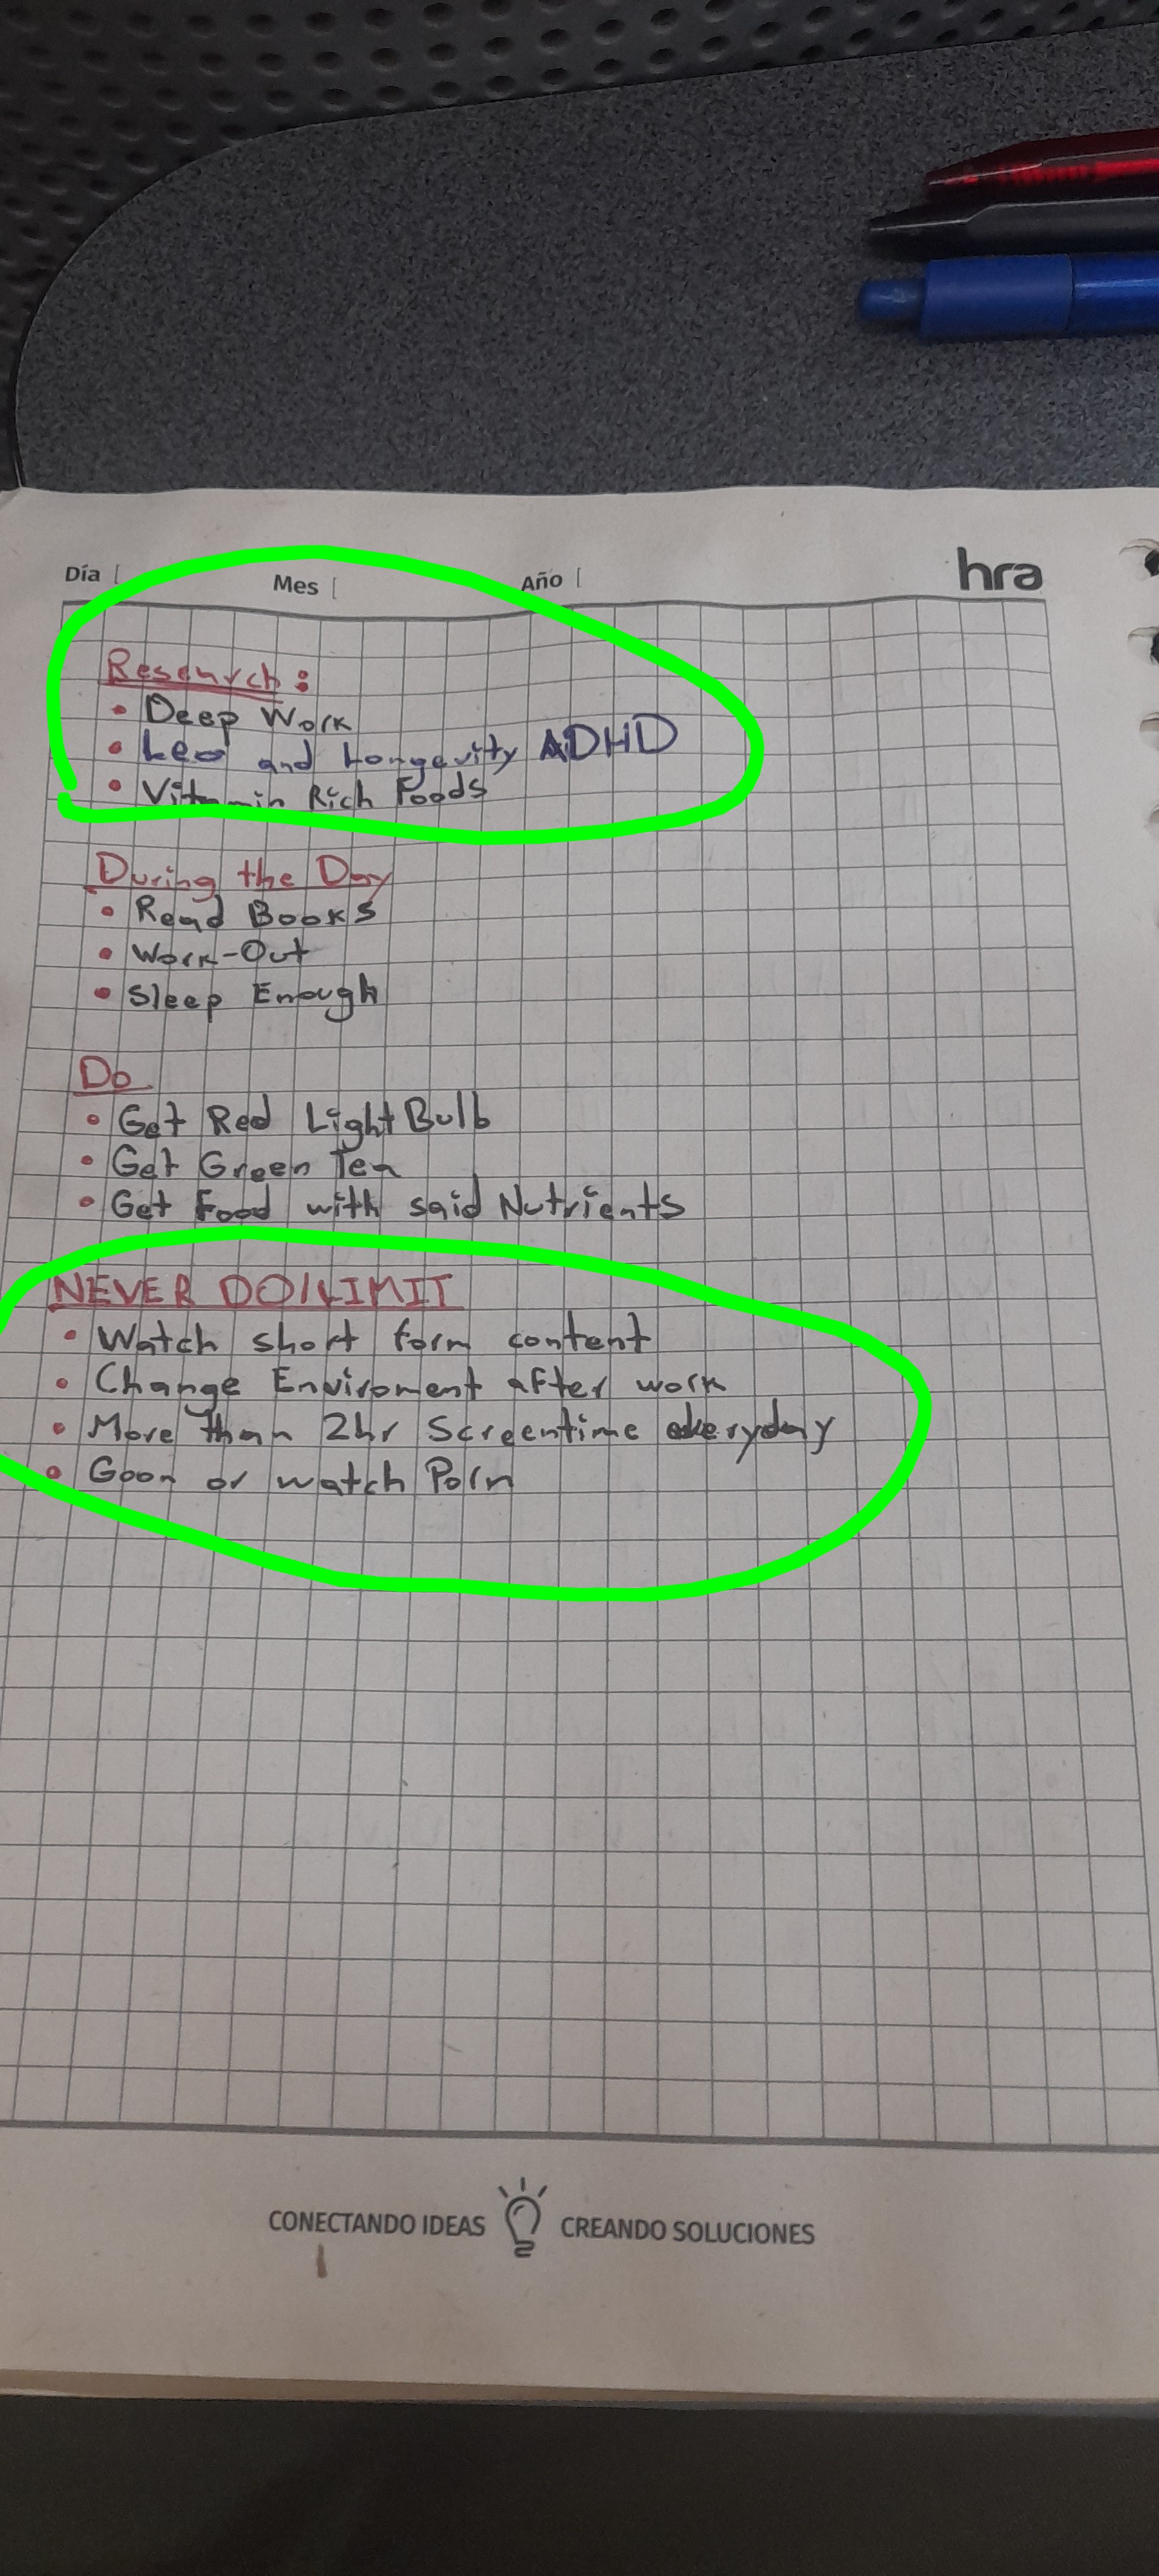 Día
Mes
Año
hra
Research:
• Deep Work
• Leo and Longevity ADHD
• Vitamin Rich Foods
During the Day
• Read Books
• Work-Out
• Sleep Enough
Do
• Get Red Light Bulb
• Get Green Tea
• Get Food with said Nutrients
NEVER DO/LIMIT
• Watch short form content
• Change Enviroment after work
• More than 2hr Screentime everyday
• Goon or watch Porn
CONECTANDO IDEAS CREANDO SOLUCIONES